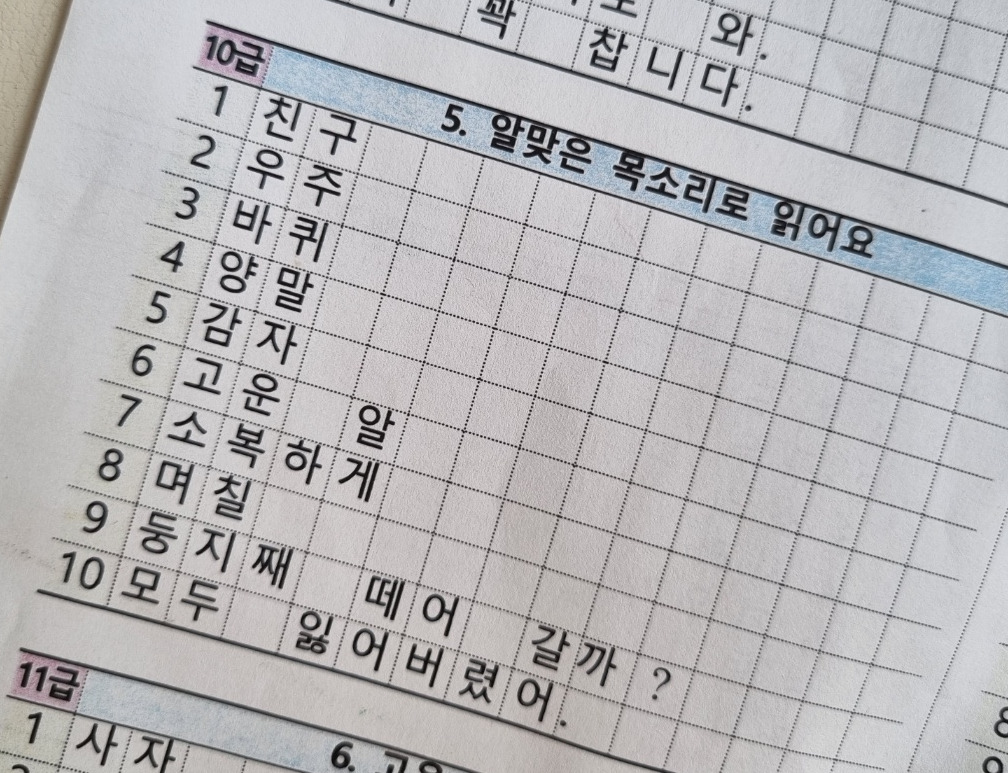 꽉 와.
찹니다.
10급 5. 알맞은 목소리로 읽어요
1 친구
2 우주
3 바퀴
4 양말
5 감자
6 고운 알
7 소복하게
8 며칠
9 둥지째 떼어 갈까?
10 모두 잃어버렸어.
11급 6.
1 사자